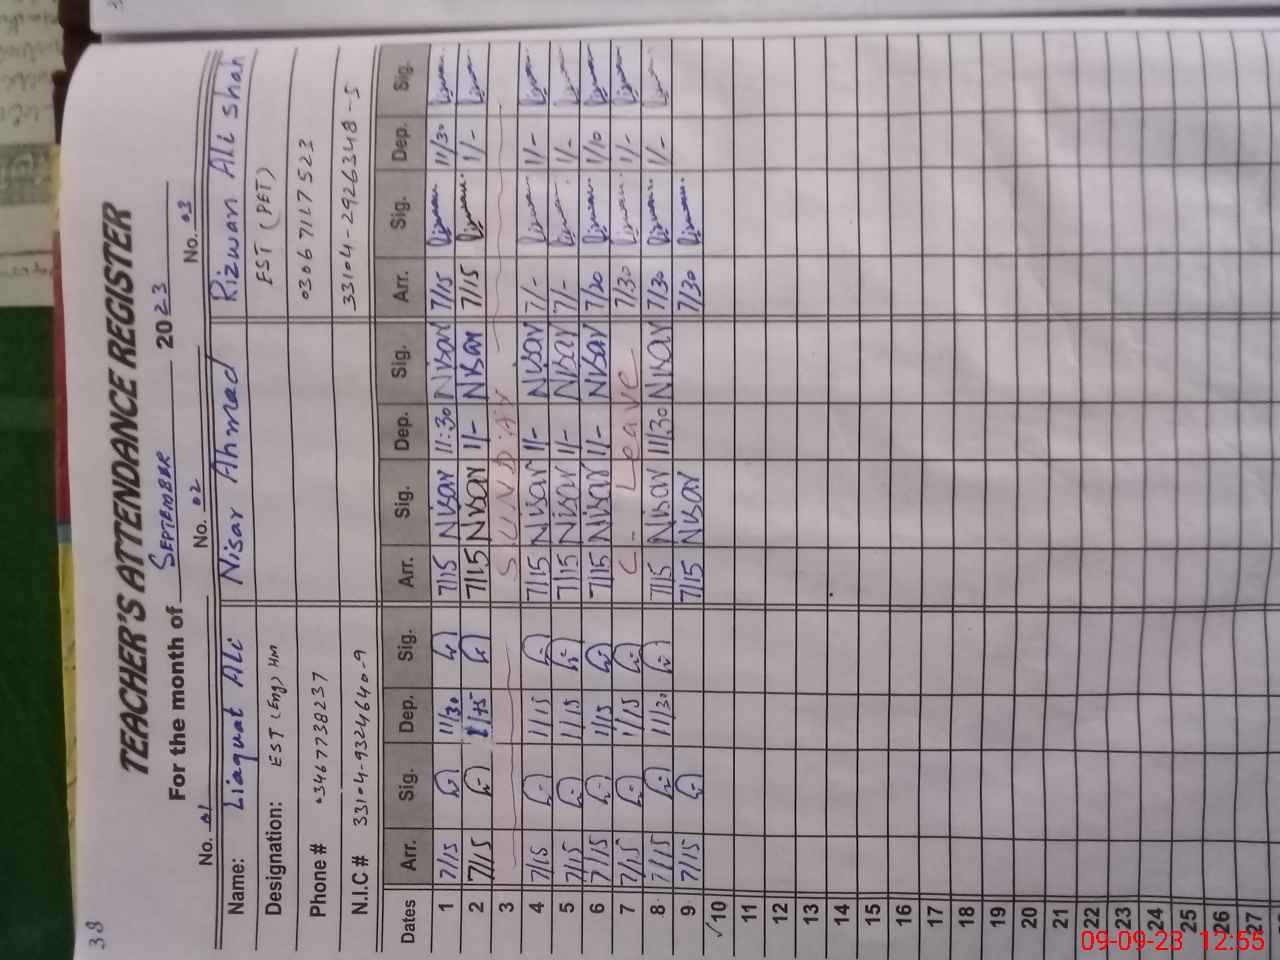 38
TEACHER'S ATTENDANCE REGISTER
For the month of SEPTEMBER 2023
No. 01 No. 02 No. 03
Name: Liaquat Ali Nisar Ahmad Rizwan Ali Shah
Designation: EST (Eng) HM EST (PET)
Phone # 03467738237 03067117523
N.I.C # 33104-9324640-9 33104-2926348-5
Dates Arr. Sig. Dep. Sig. Arr. Sig. Dep. Sig. Arr. Sig. Dep. Sig.
1 7/15 11/30 7/15 Nisar 11:30 Nisar 7/15 Rizwan 11/30 Rizwan
2 7/15 1/15 7/15 Nisar 1/- Nisar 7/15 Rizwan 1/- Rizwan
3 SUNDAY
4 7/15 1/15 7/15 Nisar 1/- Nisar 7/- Rizwan 1/- Rizwan
5 7/15 1/15 7/15 Nisar 1/- Nisar 7/- Rizwan 1/- Rizwan
6 7/15 1/15 7/15 Nisar 1/- Nisar 7/20 Rizwan 1/10 Rizwan
7 7/15 1/15 C. Leave 7/30 Rizwan 1/- Rizwan
8 7/15 11/30 7/15 Nisar 11/30 Nisar 7/30 Rizwan 1/- Rizwan
9 7/15 7/15 Nisar 7/30 Rizwan
10
11
12
13
14
15
16
17
18
19
20
21
22
23
24
25
26
27
09-09-23 12:55